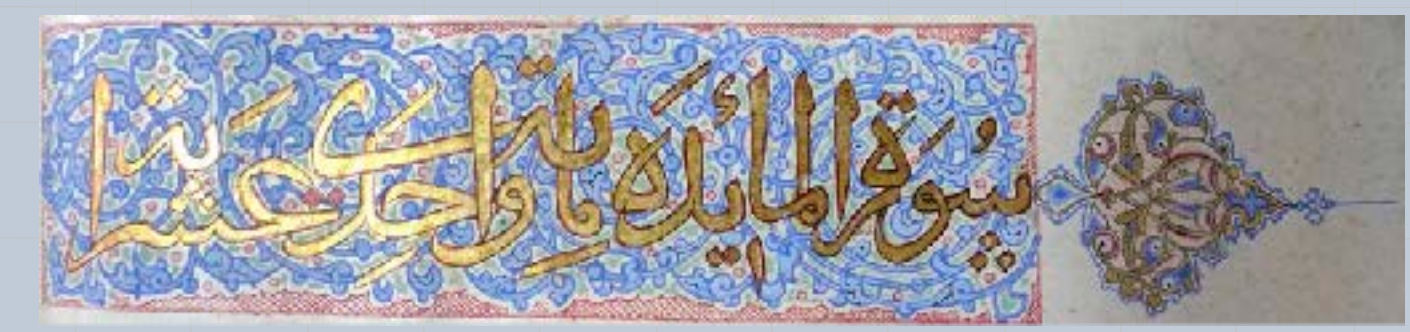 سُورَة المائدَه ماية واحدى عشر اية